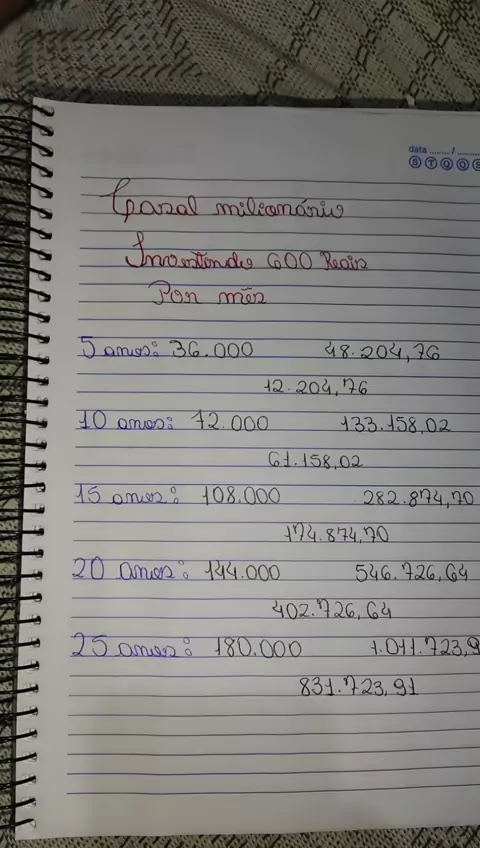 data ....... / .......
S T Q Q S
Casal milionário
Investindo 600 Reais
Por mês
5 anos: 36.000 48.204,76
12.204,76
10 anos: 72.000 133.158,02
61.158,02
15 anos: 108.000 282.874,70
174.874,70
20 anos: 144.000 546.726,64
402.726,64
25 anos: 180.000 1.011.723,9
831.723,91